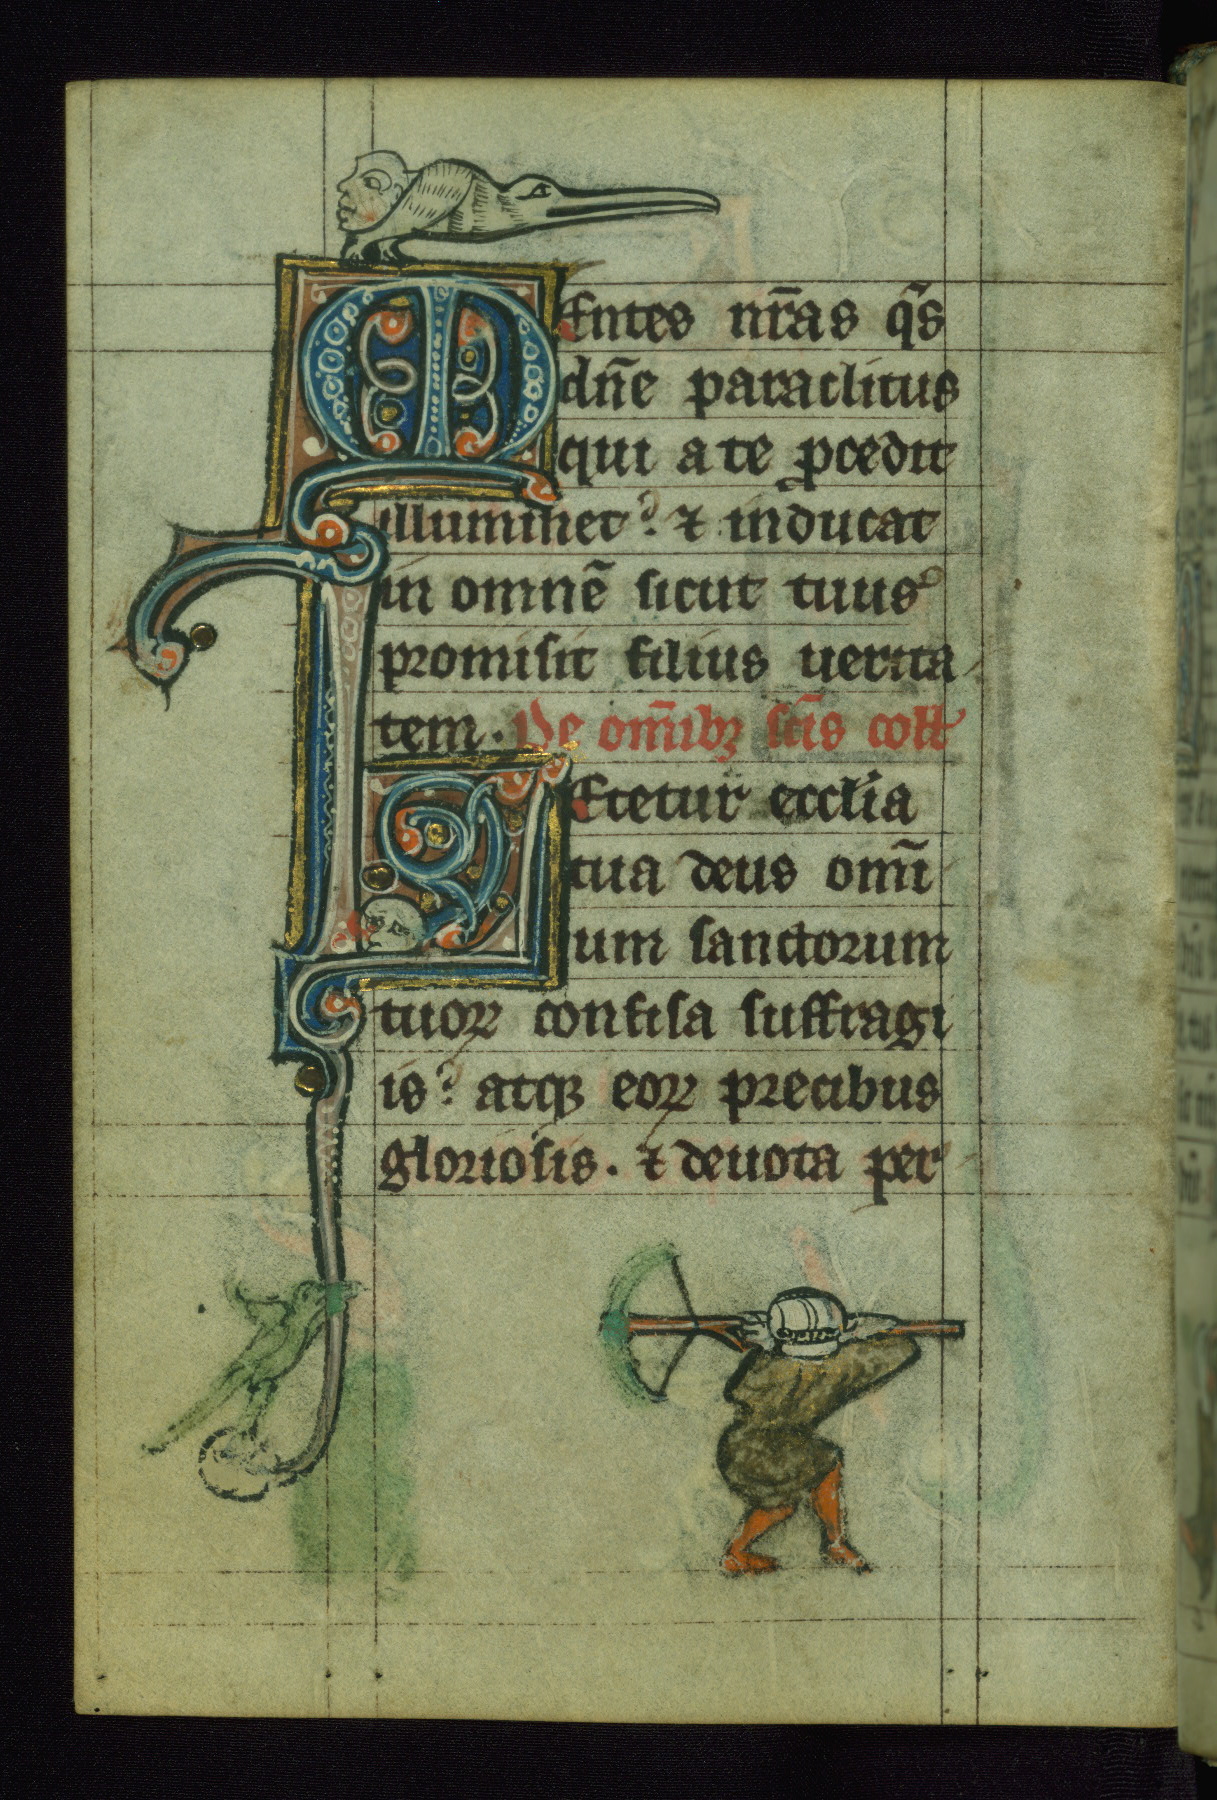 Mentes nr̄as q̄s
dn̄e paraclitus
qui a te ꝓcedit
illuminet ⁊ inducat
in omnē sicut tuus
promisit filius uerita
tem. De om̄ibꝫ sc̄is coll̄
Letetur eccl̄ia
tua deus omni
um sanctorum
tuoꝝ confisa suffragi
is? atqꝫ eoꝝ precibus
gloriosis. ⁊ deuota per